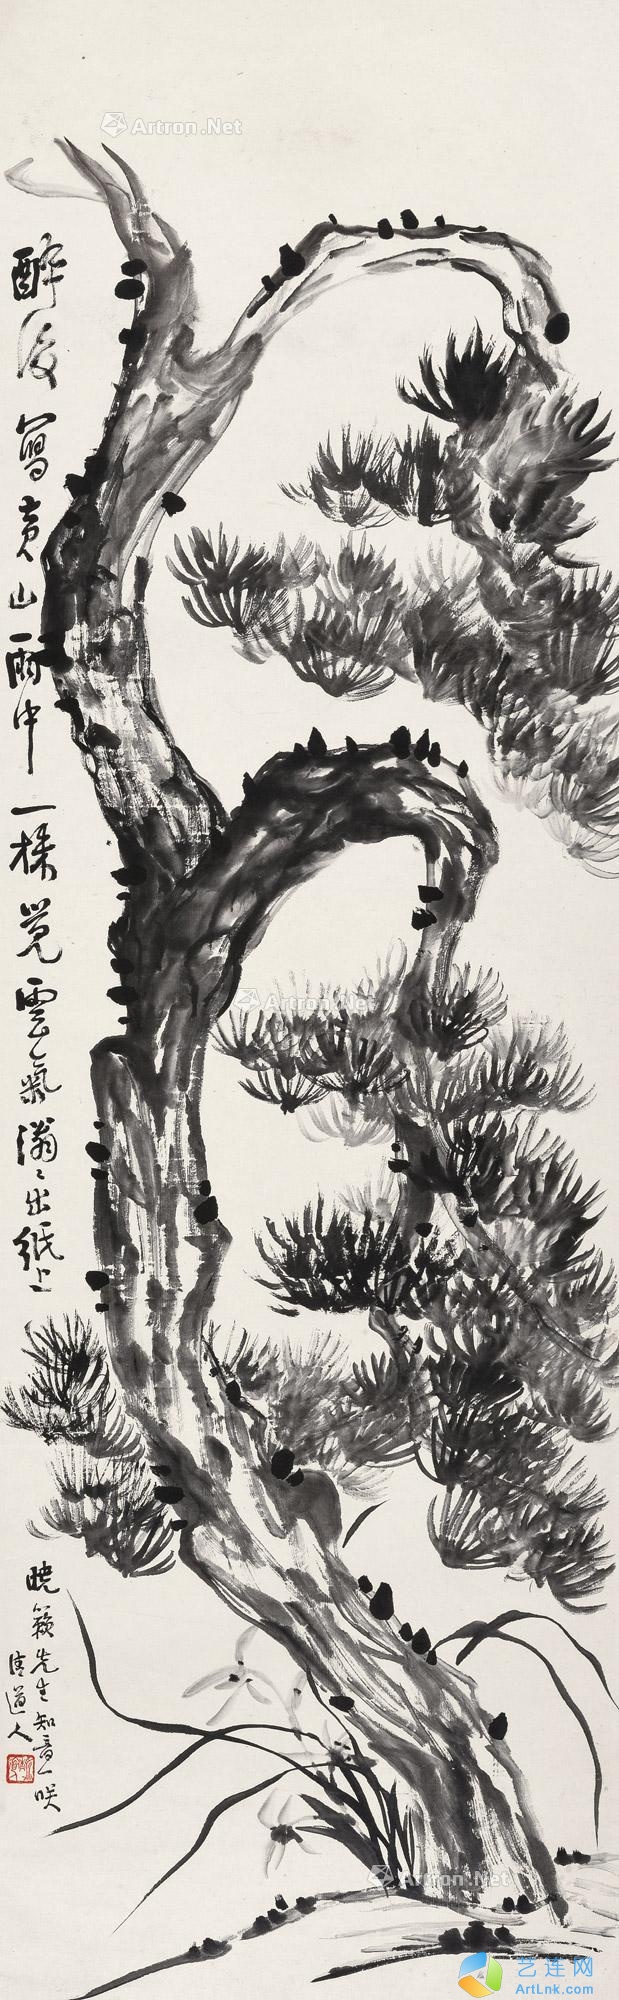 Artron.Net
醉後寫黃山雨中一株覺雲氣滃〻出紙上
曉籟先生知音一咲
清道人
Artron.Net
Artron.Net
艺连网
ArtLnk.com